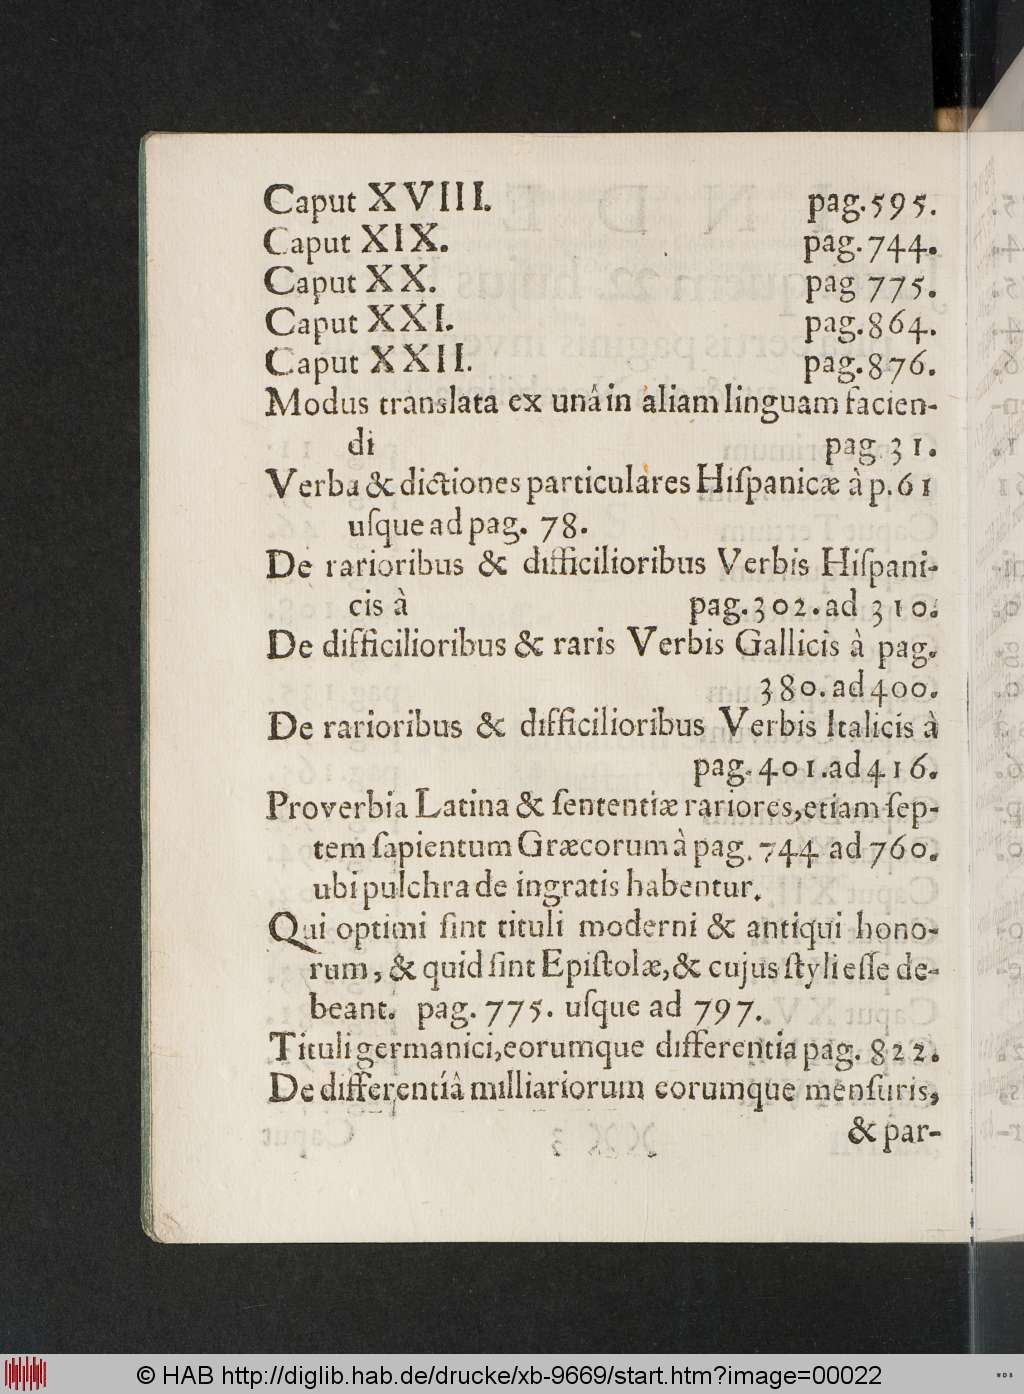 Caput XVIII. pag.595.
Caput XIX. pag.744.
Caput XX. pag 775.
Caput XXI. pag.864.
Caput XXII. pag.876.
Modus translata ex unâ in aliam linguam facien-
di pag 31.
Verba & dictiones particulares Hiſpanicæ à p.61
uſque ad pag. 78.
De rarioribus & difficilioribus Verbis Hiſpani-
cis à pag.302.ad 310.
De difficilioribus & raris Verbis Gallicis à pag.
380.ad 400.
De rarioribus & difficilioribus Verbis Italicis à
pag.401.ad 416.
Proverbia Latina & ſententiæ rariores,etiam ſep-
tem ſapientum Græcorum à pag. 744 ad 760.
ubi pulchra de ingratis habentur.
Qui optimi ſint tituli moderni & antiqui hono-
rum, & quid ſint Epiſtolæ,& cujus ſtyli eſſe de-
beant. pag. 775. uſque ad 797.
Tituli germanici,eorumque differentia pag. 822.
De differentíâ milliariorum eorumque menſuris,
& par-
© HAB http://diglib.hab.de/drucke/xb-9669/start.htm?image=00022